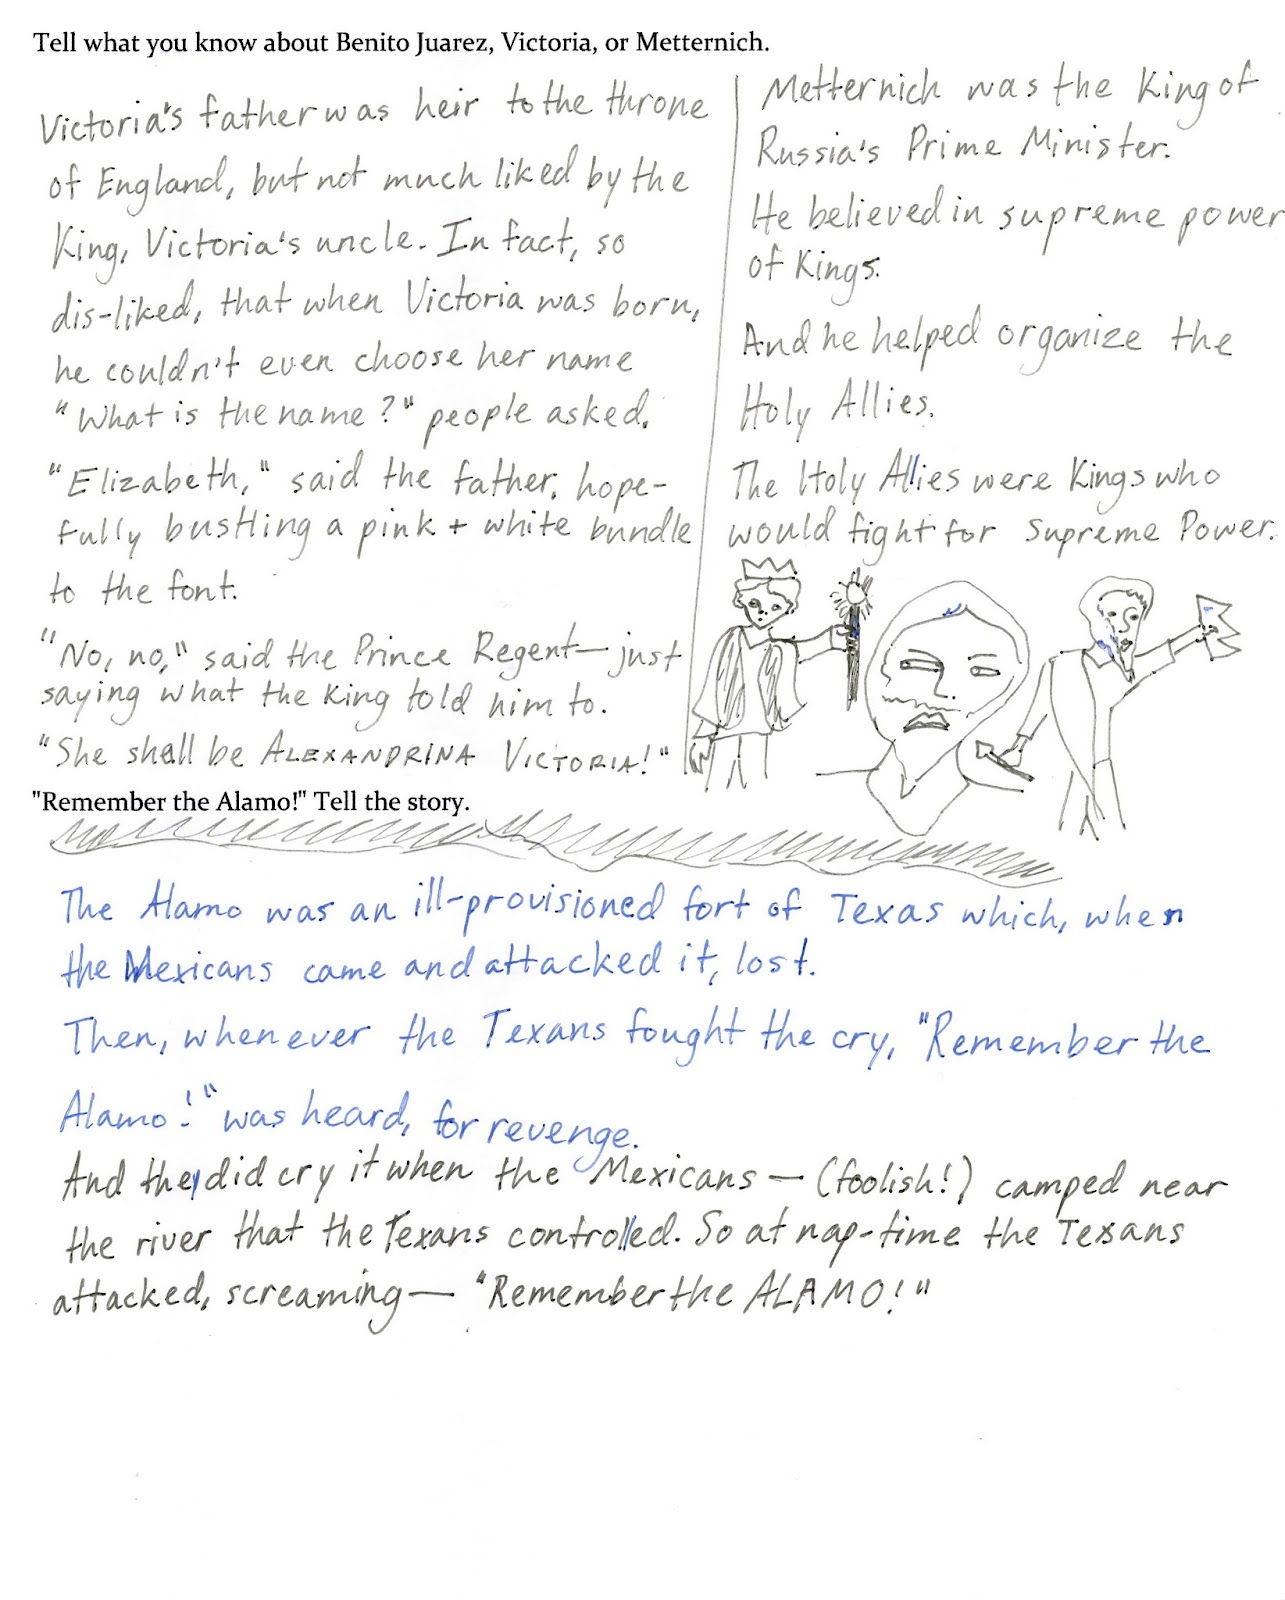 Tell what you know about Benito Juarez, Victoria, or Metternich.
Victoria's father was heir to the throne
of England, but not much liked by the
King, Victoria's uncle. In fact, so
dis-liked, that when Victoria was born,
he couldn't even choose her name
"What is the name?" people asked.
"Elizabeth," said the father, hope-
fully bustling a pink + white bundle
to the font.
"No, no," said the Prince Regent—just
saying what the King told him to.
"She shall be ALEXANDRINA VICTORIA!"
Metternich was the King of
Russia's Prime Minister.
He believed in supreme power
of Kings.
And he helped organize the
Holy Allies.
The Holy Allies were Kings who
would fight for Supreme Power.
"Remember the Alamo!" Tell the story.
The Alamo was an ill-provisioned fort of Texas which, when
the Mexicans came and attacked it, lost.
Then, whenever the Texans fought the cry, "Remember the
Alamo!" was heard, for revenge.
And they did cry it when the Mexicans — (foolish!) camped near
the river that the Texans controlled. So at nap-time the Texans
attacked, screaming — "Remember the ALAMO!"